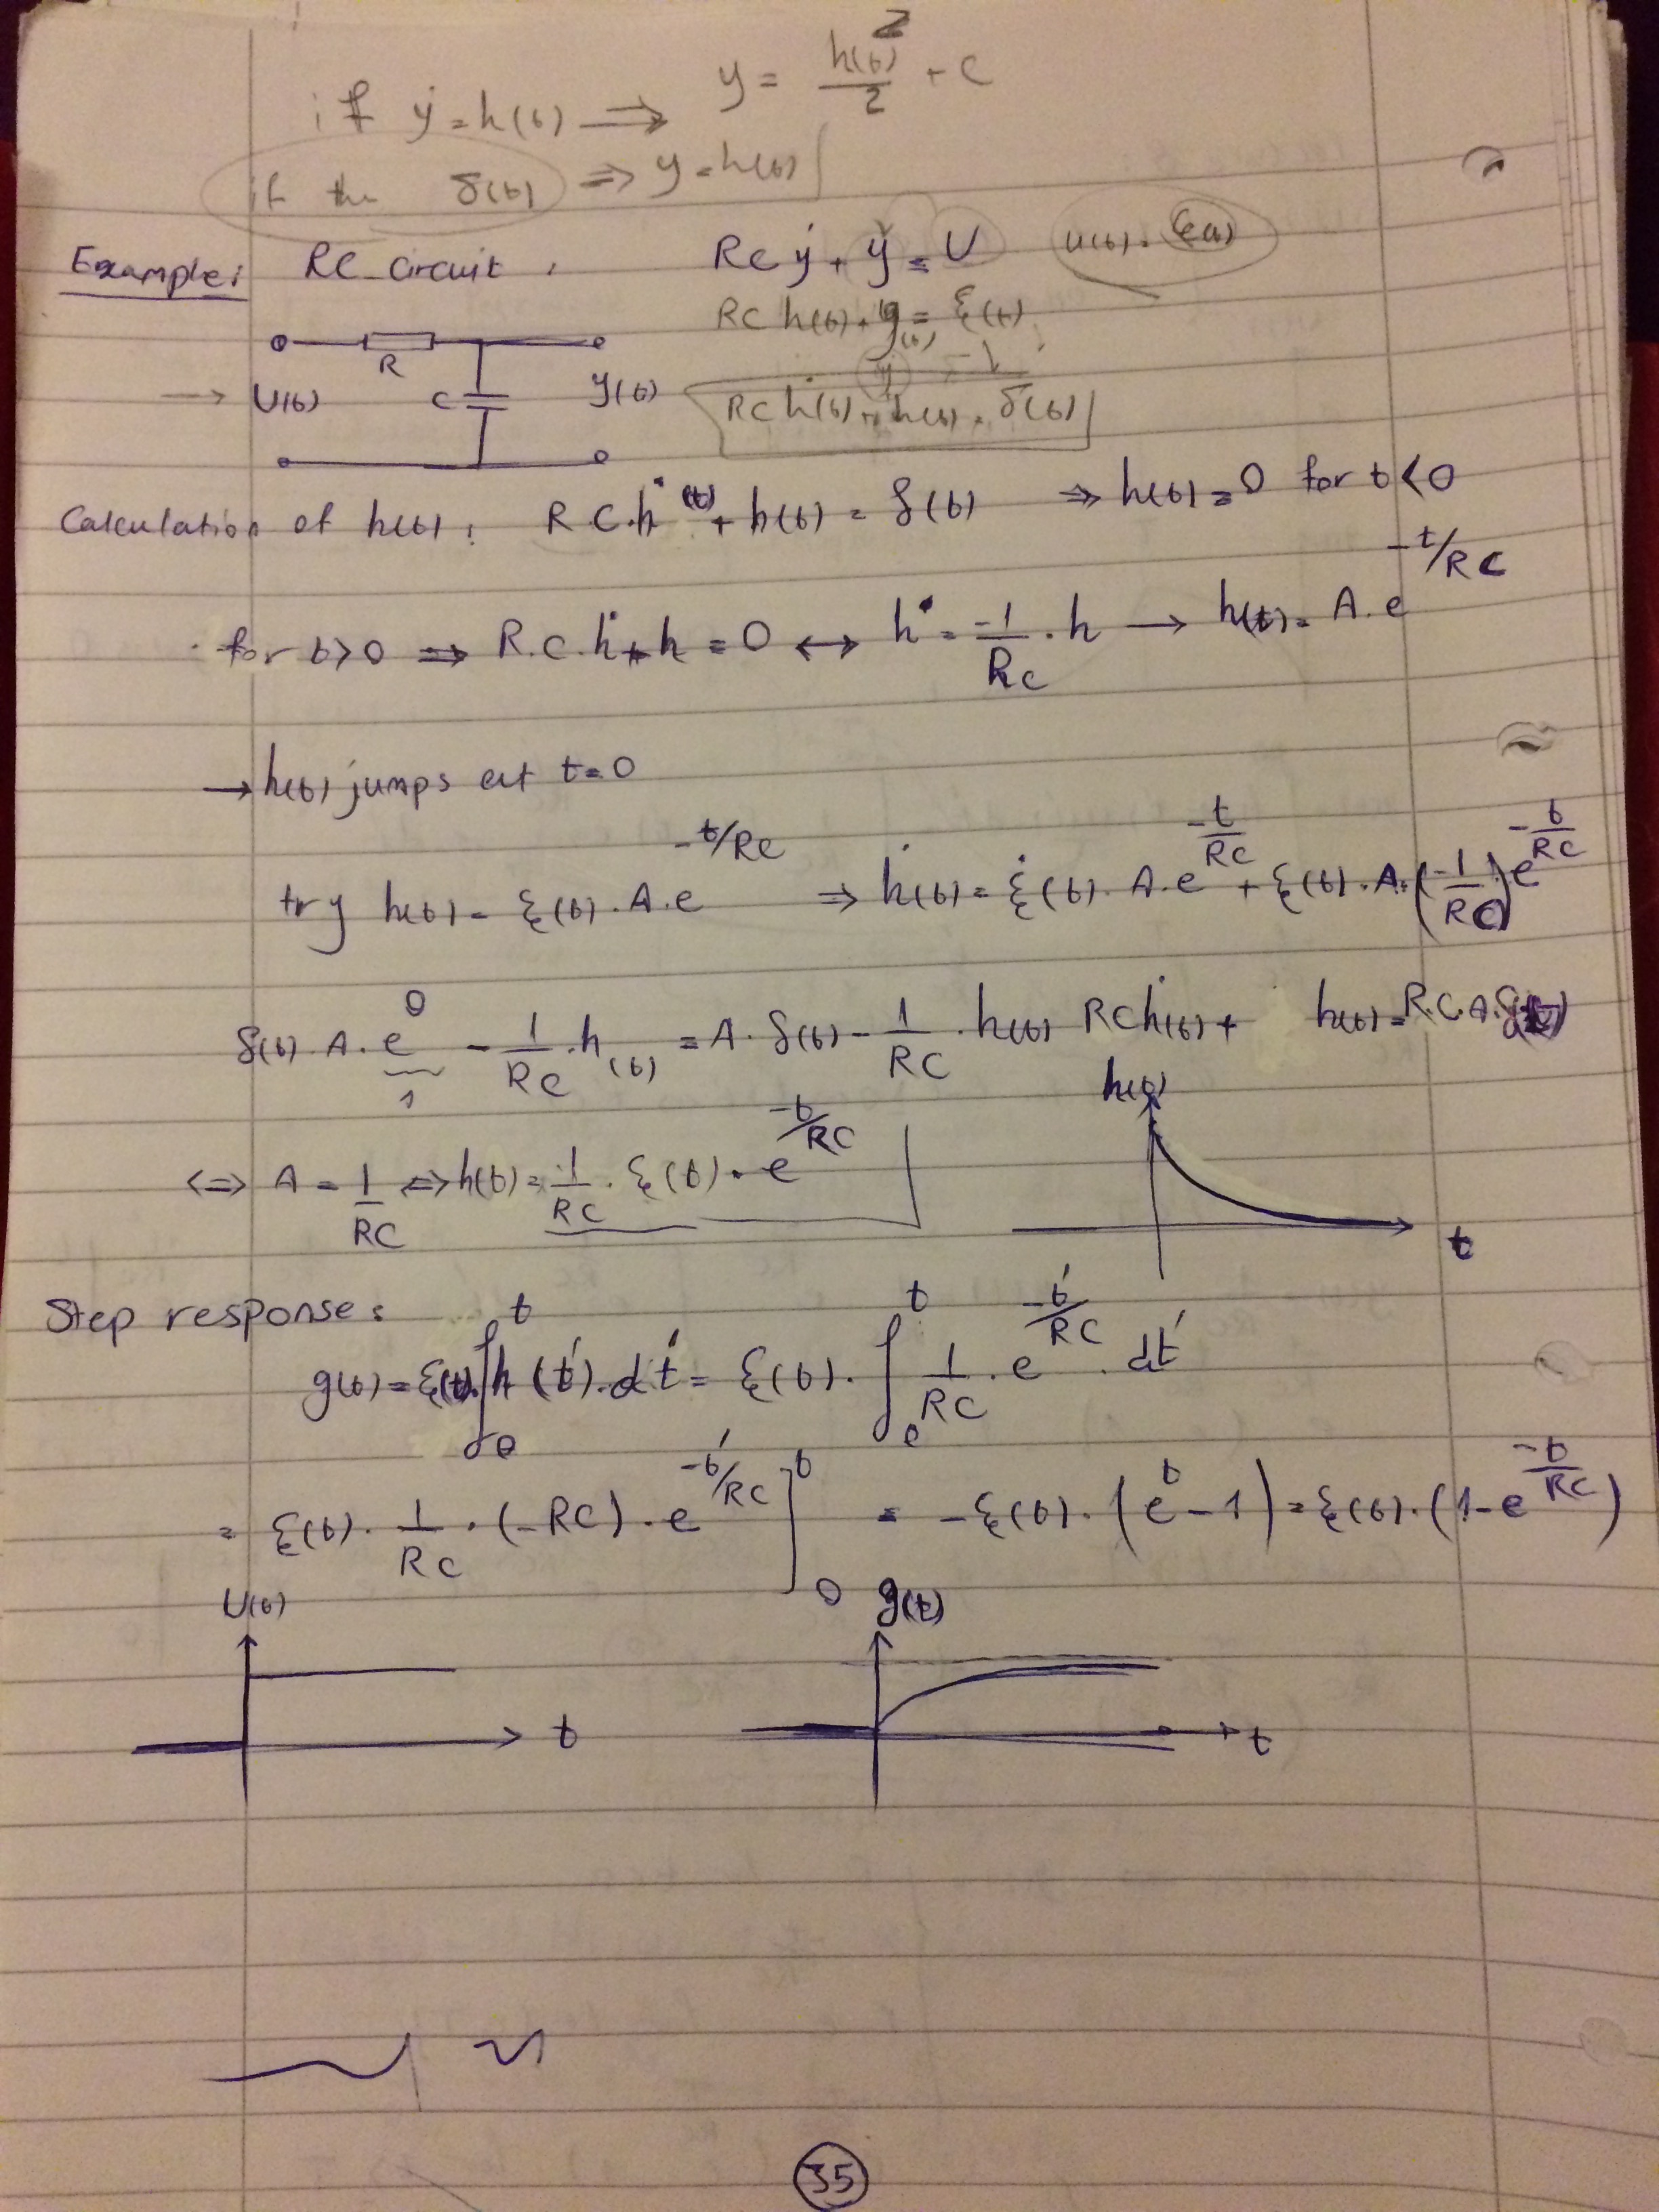 if ẏ = h(t) ⟹ y = h(t)²/2 + C
if the δ(t) ⟹ y = h(t)
Example: RC_Circuit: RC ẏ + y = U u(t) = ε(t)
RC h(t) + y(t) = ξ(t)
R
U(t) C y(t) RC ḣ(t) + h(t) = δ(t)
Calculation of h(t): R.C.ḣ(t) + h(t) = δ(t) ⟹ h(t) = 0 for t<0
for t>0 ⟹ R.C.ḣ + h = 0 ⟷ ḣ = -1/RC . h → h(t) = A.e^(-t/RC)
→ h(t) jumps at t=0
try h(t) = ξ(t).A.e^(-t/RC) ⟹ ḣ(t) = ξ̇(t). A.e^(-t/RC) + ξ(t).A.(-1/RC)e^(-t/RC)
δ(t) A. e^0 - 1/RC .h(t) = A. δ(t) - 1/RC .h(t) RCḣ(t) + h(t) = R.C.A.δ(t)
1
h(t)
<=> A = 1/RC <=> h(t) = 1/RC . ξ(t). e^(-t/RC)
t
Step response:
g(t) = ξ(t).∫₀^t h(t').dt' = ξ(t). ∫₀^t 1/RC . e^(-t'/RC) . dt'
= ξ(t). 1/RC . (-RC). e^(-t'/RC) ]₀^t = -ξ(t).(e^t - 1) = ξ(t).(1-e^(-t/RC))
U(t) g(t)
t t
35